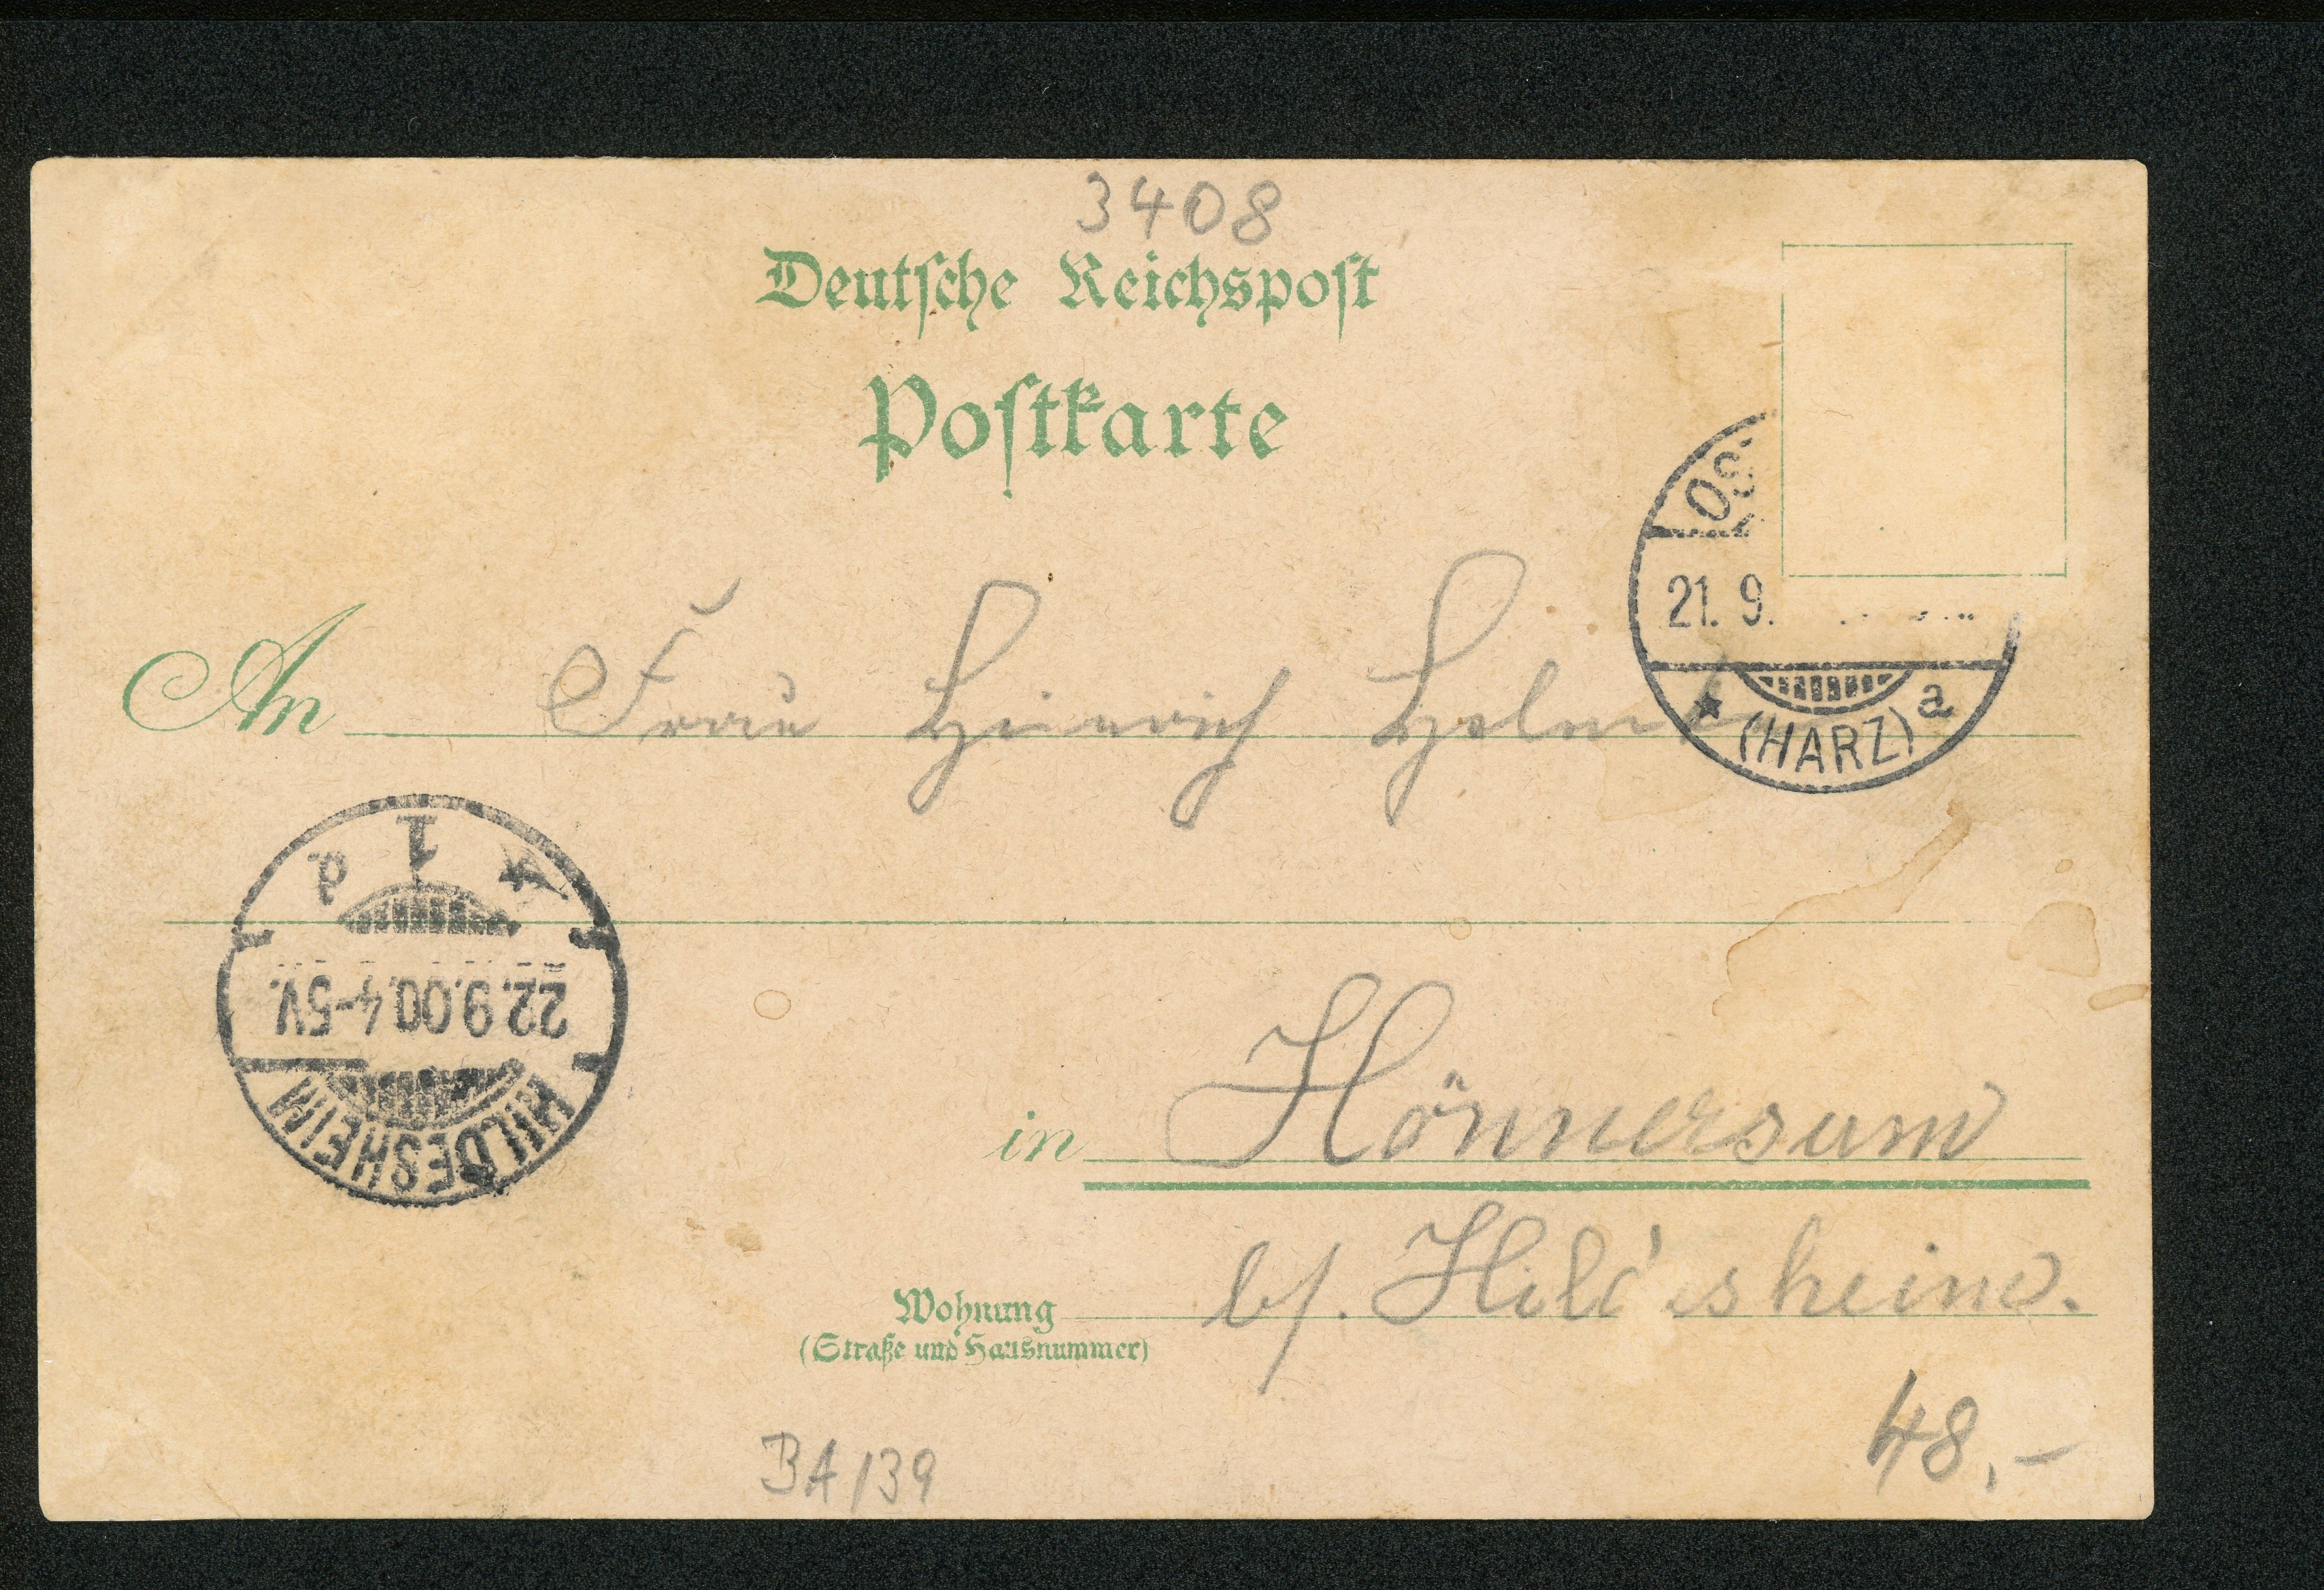 3408
Deutsche Reichspost
Postkarte
OS
21. 9.
a
(HARZ)
An Frau Heinrich
1
d.
22.9.00.4-5V.
HILDESHEIM
in Hönnersum
Wohnung b/. Hildesheim.
(Straße und Hausnummer)
48,-
BA 139